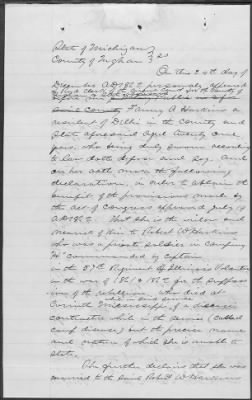 State of Michigan
County of Ingham } SS
On this 24th day of
December A.D. 1882 personally appeared
before me
said County Fannie A Harkins a
resident of Delhi in the County and
State aforesaid aged twenty one
years, who being duly sworn according
to law doth depose and say. And
on her oath make the following
declaration, in order to obtain the
benefit of the provisions made by
the act of Congress approved July 14
AD 1862. That she is the widow and
married of him to Robert W Harkins
who was a private soldier in company
"H" commanded by Captain
in the 57th Regiment of Illinois Volunteers
in the war of 1861 & 1862 for the suppres
sion of the rebellion who died at
while in said service
Corinth Mississippi of a disease
contracted while in the service (called
camp disease) but the precise name
and nature of which she is unable to
state.
She further declares that she was
married to the said Robert W Harkins